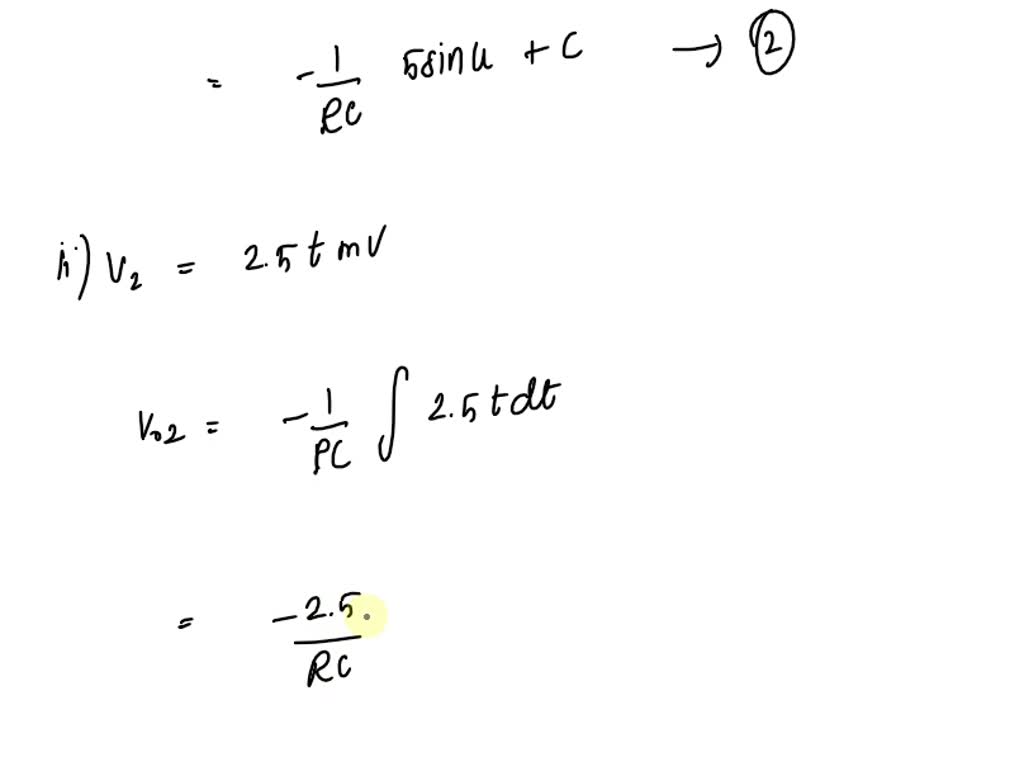 = -1/RC 5sinu + C → ②
ii) V₂ = 2.5 t mV
V₀₂ = -1/RC ∫ 2.5 t dt
= -2.5/RC